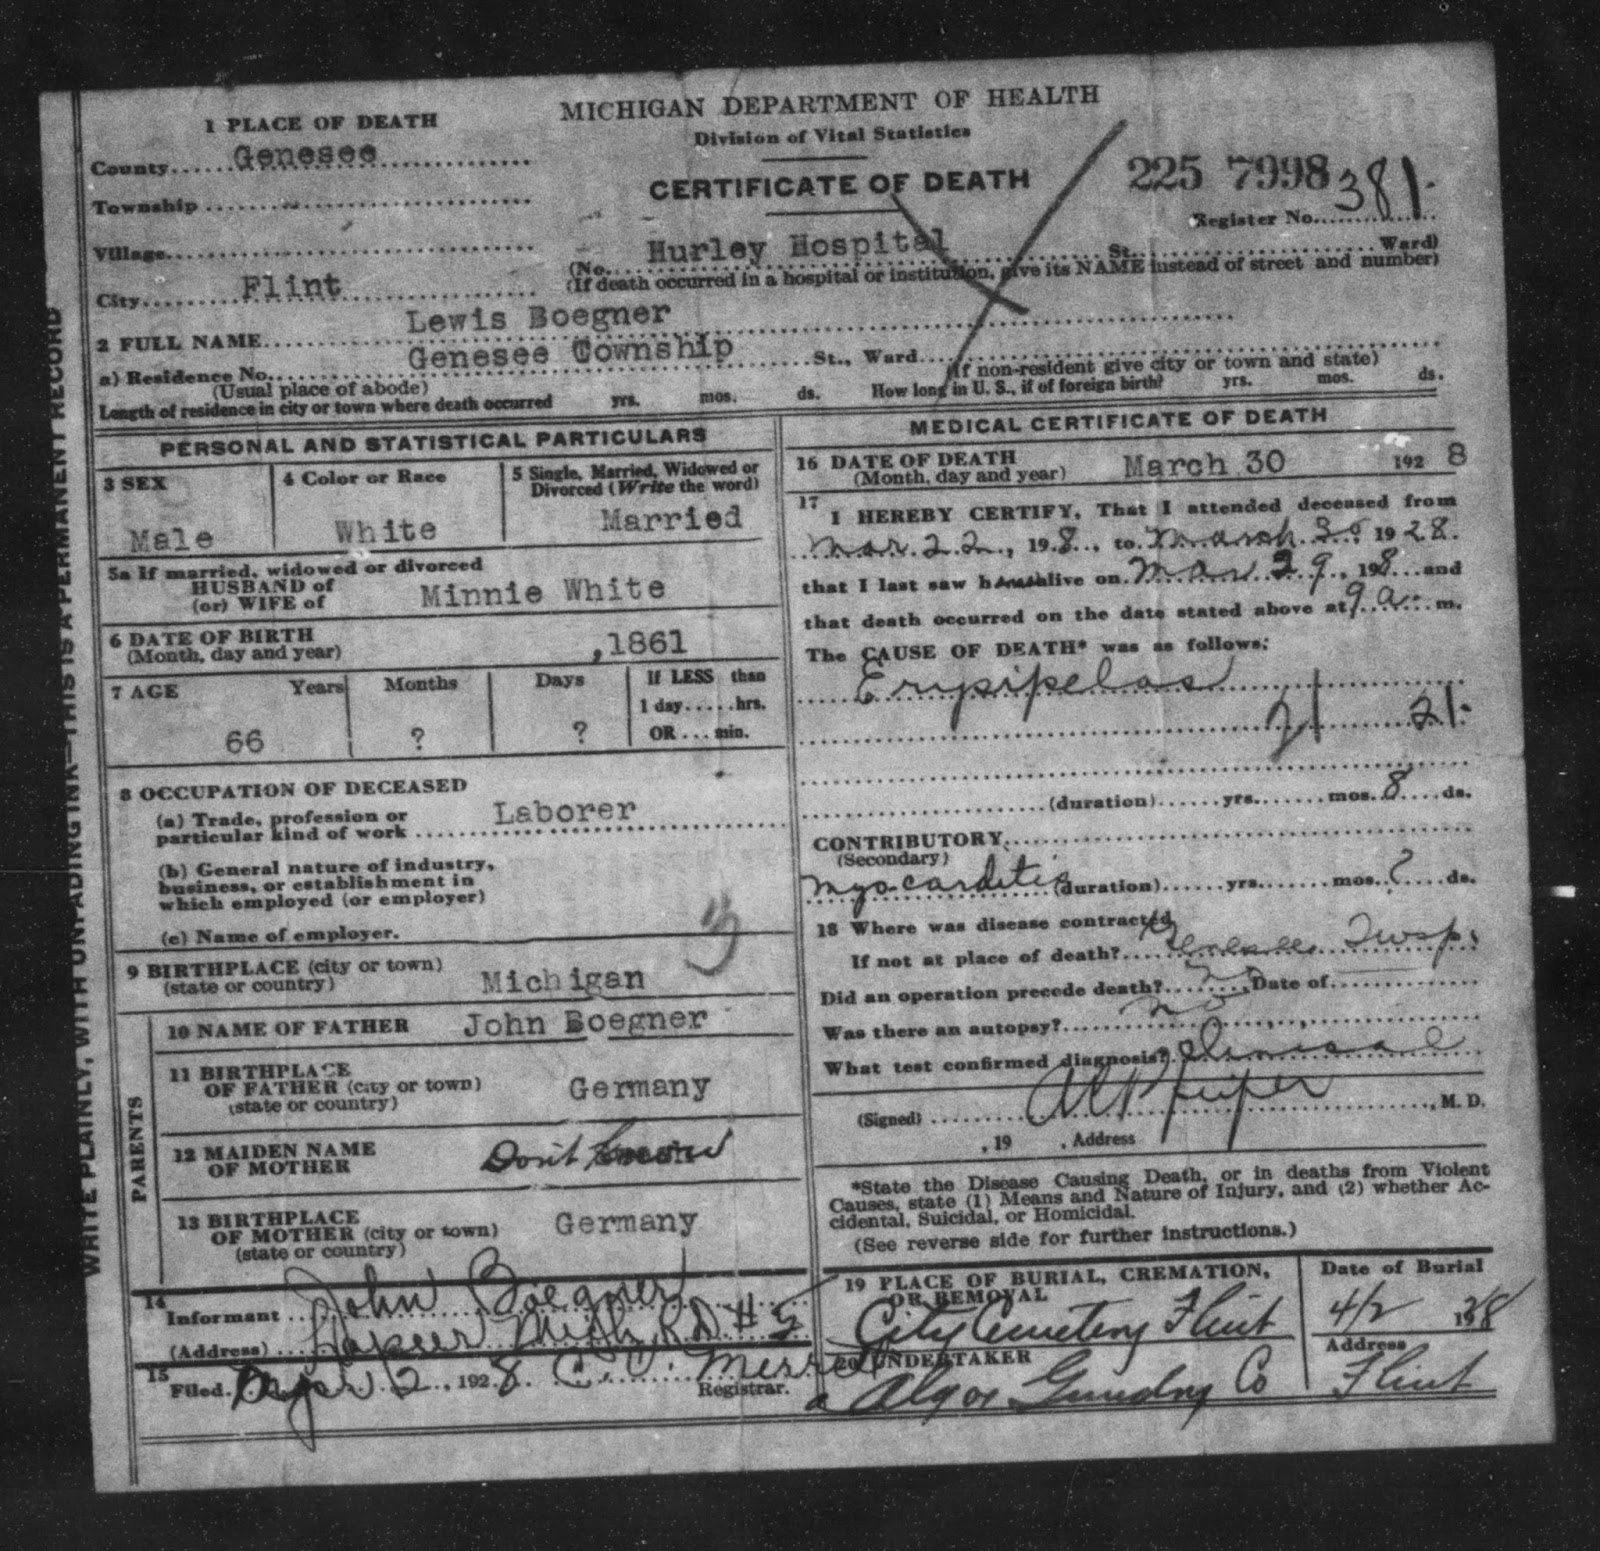 MICHIGAN DEPARTMENT OF HEALTH
Division of Vital Statistics
CERTIFICATE OF DEATH
225 7998
Register No. 381
1 PLACE OF DEATH
County Genesee
Township
Village
City Flint
(No. Hurley Hospital St. Ward)
(If death occurred in a hospital or institution, give its NAME instead of street and number)
2 FULL NAME Lewis Boegner
a) Residence No. Genesee Township St., Ward
(Usual place of abode) (If non-resident give city or town and state)
Length of residence in city or town where death occurred yrs. mos. ds. How long in U. S., if of foreign birth? yrs. mos. ds.
PERSONAL AND STATISTICAL PARTICULARS
3 SEX
Male
4 Color or Race
White
5 Single, Married, Widowed or
Divorced (Write the word)
Married
5a If married, widowed or divorced
HUSBAND of
(or) WIFE of Minnie White
6 DATE OF BIRTH
(Month, day and year) ,1861
7 AGE Years Months Days If LESS than
1 day.....hrs.
66 ? ? OR ... min.
8 OCCUPATION OF DECEASED
(a) Trade, profession or
particular kind of work Laborer
(b) General nature of industry,
business, or establishment in
which employed (or employer)
(c) Name of employer.
9 BIRTHPLACE (city or town)
(state or country) Michigan
PARENTS
10 NAME OF FATHER John Boegner
11 BIRTHPLACE
OF FATHER (city or town)
(state or country) Germany
12 MAIDEN NAME
OF MOTHER Don't Know
13 BIRTHPLACE
OF MOTHER (city or town)
(state or country) Germany
14
Informant John Boegner
(Address) Lapeer Mich RD #5
15
Filed Apr 2, 1928 C. C. Merrell
Registrar.
MEDICAL CERTIFICATE OF DEATH
16 DATE OF DEATH
(Month, day and year) March 30 1928
17
I HEREBY CERTIFY, That I attended deceased from
Mar. 22, 19 8, to March 30 1928.
that I last saw h alive on Mar 29, 198 and
that death occurred on the date stated above at 9 a. m.
The CAUSE OF DEATH* was as follows:
Erypipelas
21 21.
(duration) yrs. mos. 8 ds.
CONTRIBUTORY
(Secondary)
myocarditis (duration) yrs. mos. ? ds.
18 Where was disease contracted
If not at place of death? Genesee Twsp.
Did an operation precede death? no Date of
Was there an autopsy? no
What test confirmed diagnosis? Clinical
(Signed) A C Pfeifer, M. D.
, 19 . Address
*State the Disease Causing Death, or in deaths from Violent
Causes, state (1) Means and Nature of Injury, and (2) whether Ac-
cidental, Suicidal, or Homicidal.
(See reverse side for further instructions.)
19 PLACE OF BURIAL, CREMATION,
OR REMOVAL
City Cemetery Flint
Date of Burial
4/2 1928
20 UNDERTAKER
Algoe Gundry Co
Address
Flint
WRITE PLAINLY, WITH UNFADING INK—THIS IS A PERMANENT RECORD